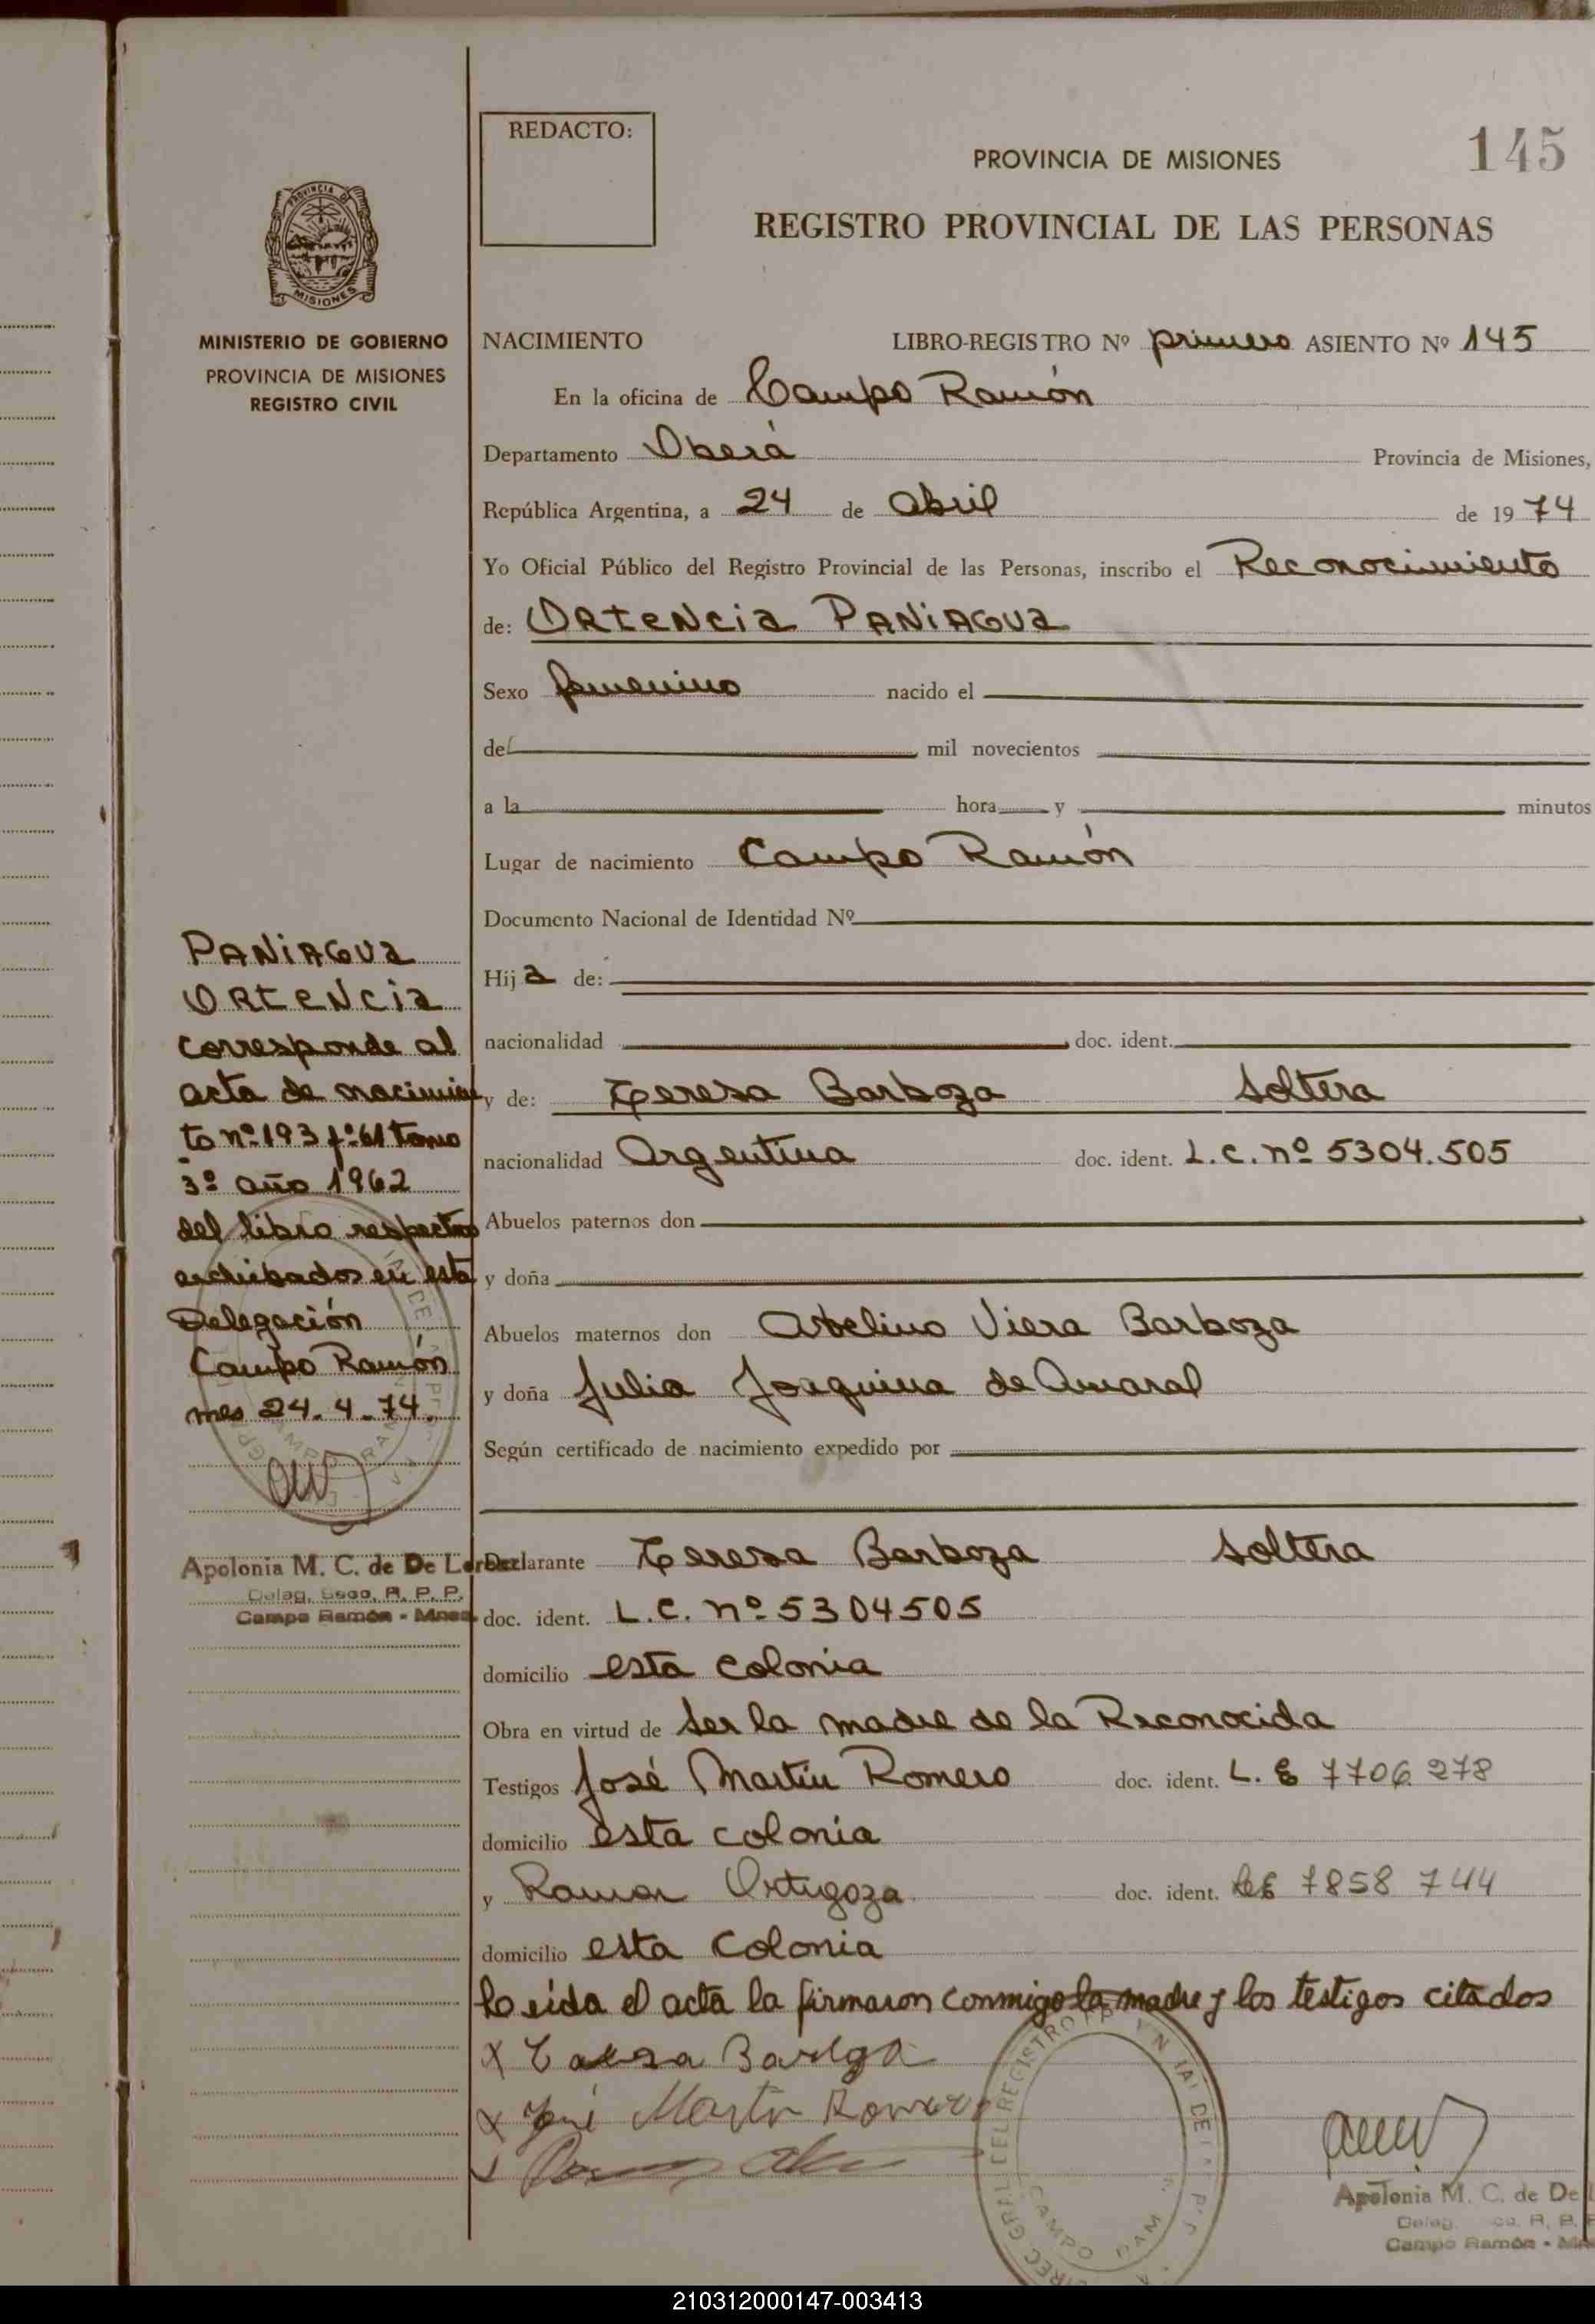 REDACTO:
PROVINCIA DE MISIONES
145
REGISTRO PROVINCIAL DE LAS PERSONAS
PROVINCIA DE
MISIONES
MINISTERIO DE GOBIERNO
PROVINCIA DE MISIONES
REGISTRO CIVIL
NACIMIENTO LIBRO-REGISTRO Nº primero ASIENTO Nº 145
En la oficina de Campo Ramón
Departamento Oberá Provincia de Misiones,
República Argentina, a 24 de abril de 1974
Yo Oficial Público del Registro Provincial de las Personas, inscribo el Reconocimiento
de: ORtENCia PANiAGUa
Sexo femenino nacido el
de mil novecientos
a la hora y minutos
Lugar de nacimiento Campo Ramón
Documento Nacional de Identidad Nº
Hija de:
nacionalidad doc. ident.
y de: Teresa Barboza soltera
nacionalidad Argentina doc. ident. L.C. nº 5304.505
Abuelos paternos don
y doña
Abuelos maternos don Abelino Viera Barboza
y doña Julia Joaquina de Amaral
Según certificado de nacimiento expedido por
Declarante Teresa Barboza soltera
doc. ident. L.C. nº 5304505
domicilio esta colonia
Obra en virtud de ser la madre de la Reconocida
Testigos José Martin Romero doc. ident. L. E 7706 278
domicilio esta colonia
y Ramon Ortigoza doc. ident. LE 7858 744
domicilio esta colonia
Leida el acta la firmaron conmigo la madre y los testigos citados
José Martin Romero
PANiAGUa
ORtENCia
corresponde al
acta de nacimien
to nº 193 fº 61 tomo
3º año 1962
del libro respectivo
archibados en esta
Delegación
Campo Ramón
mes 24. 4. 74.
Apolonia M. C. de De
Campo Ramón - Mnes
Apolonia M. C. de De
Campo Ramón
210312000147-003413